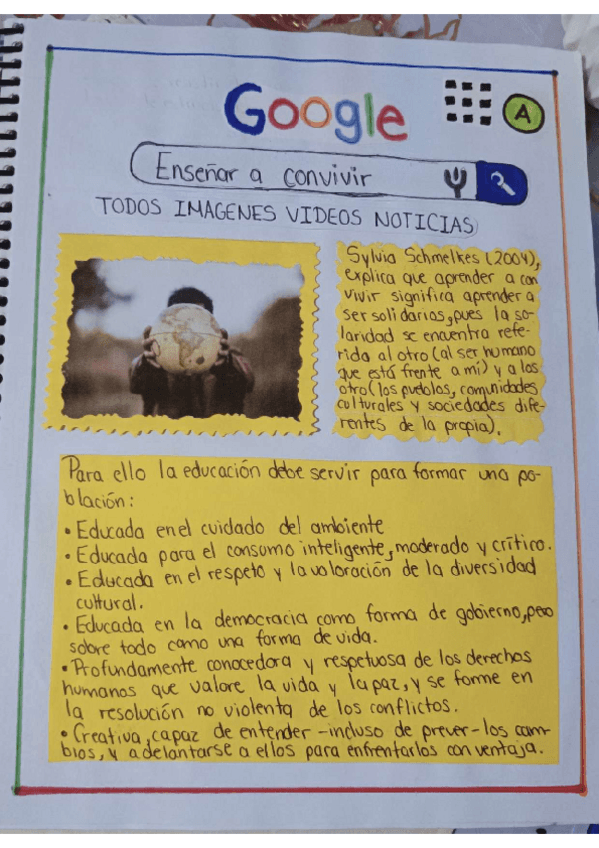 Google
A
Enseñar a convivir
TODOS IMAGENES VIDEOS NOTICIAS
Sylvia Schmelkes (2004),
explica que aprender a con
vivir significa aprender a
ser solidarios, pues la so-
laridad se encuentra refe-
rida al otro (al ser humano
que está frente a mí) y a los
otro (los pueblos, comunidades
culturales y sociedades dife-
rentes de la propia).
Para ello la educación debe servir para formar una po-
blación:
• Educada en el cuidado del ambiente
• Educada para el consumo inteligente, moderado y crítico.
• Educada en el respeto y la valoración de la diversidad
cultural.
• Educada en la democracia como forma de gobierno, pero
sobre todo como una forma de vida.
• Profundamente conocedora y respetuosa de los derechos
humanos que valore la vida y la paz, y se forme en
la resolución no violenta de los conflictos.
• Creativa, capaz de entender -incluso de prever- los cam-
bios, y adelantarse a ellos para enfrentarlos con ventaja.